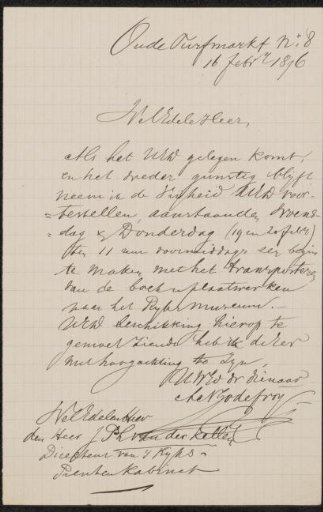 Oude Turfmarkt No 8
16 febr. 1896
WelEdele Heer,
Als het UEd gelegen komt,
en het weder gunstig blijft
neem ik de vrijheid UEd voor-
=testellen, aanstaande woens-
dag & Donderdag (19 en 20 febr)
ten 11 uur voormiddags een begin
te maken met het transporteren
van de boek en plaatwerken
naar het Rijks museum.—
UEd beschikking hierop te
gemoet ziende heb ik de Eer
met hoogachting te Zijn
UWEd dr dienaar
WelEdelen Heer
den Heer J. Ph van der Kellen
Directeur van 's Rijks-
Prenten Kabinet